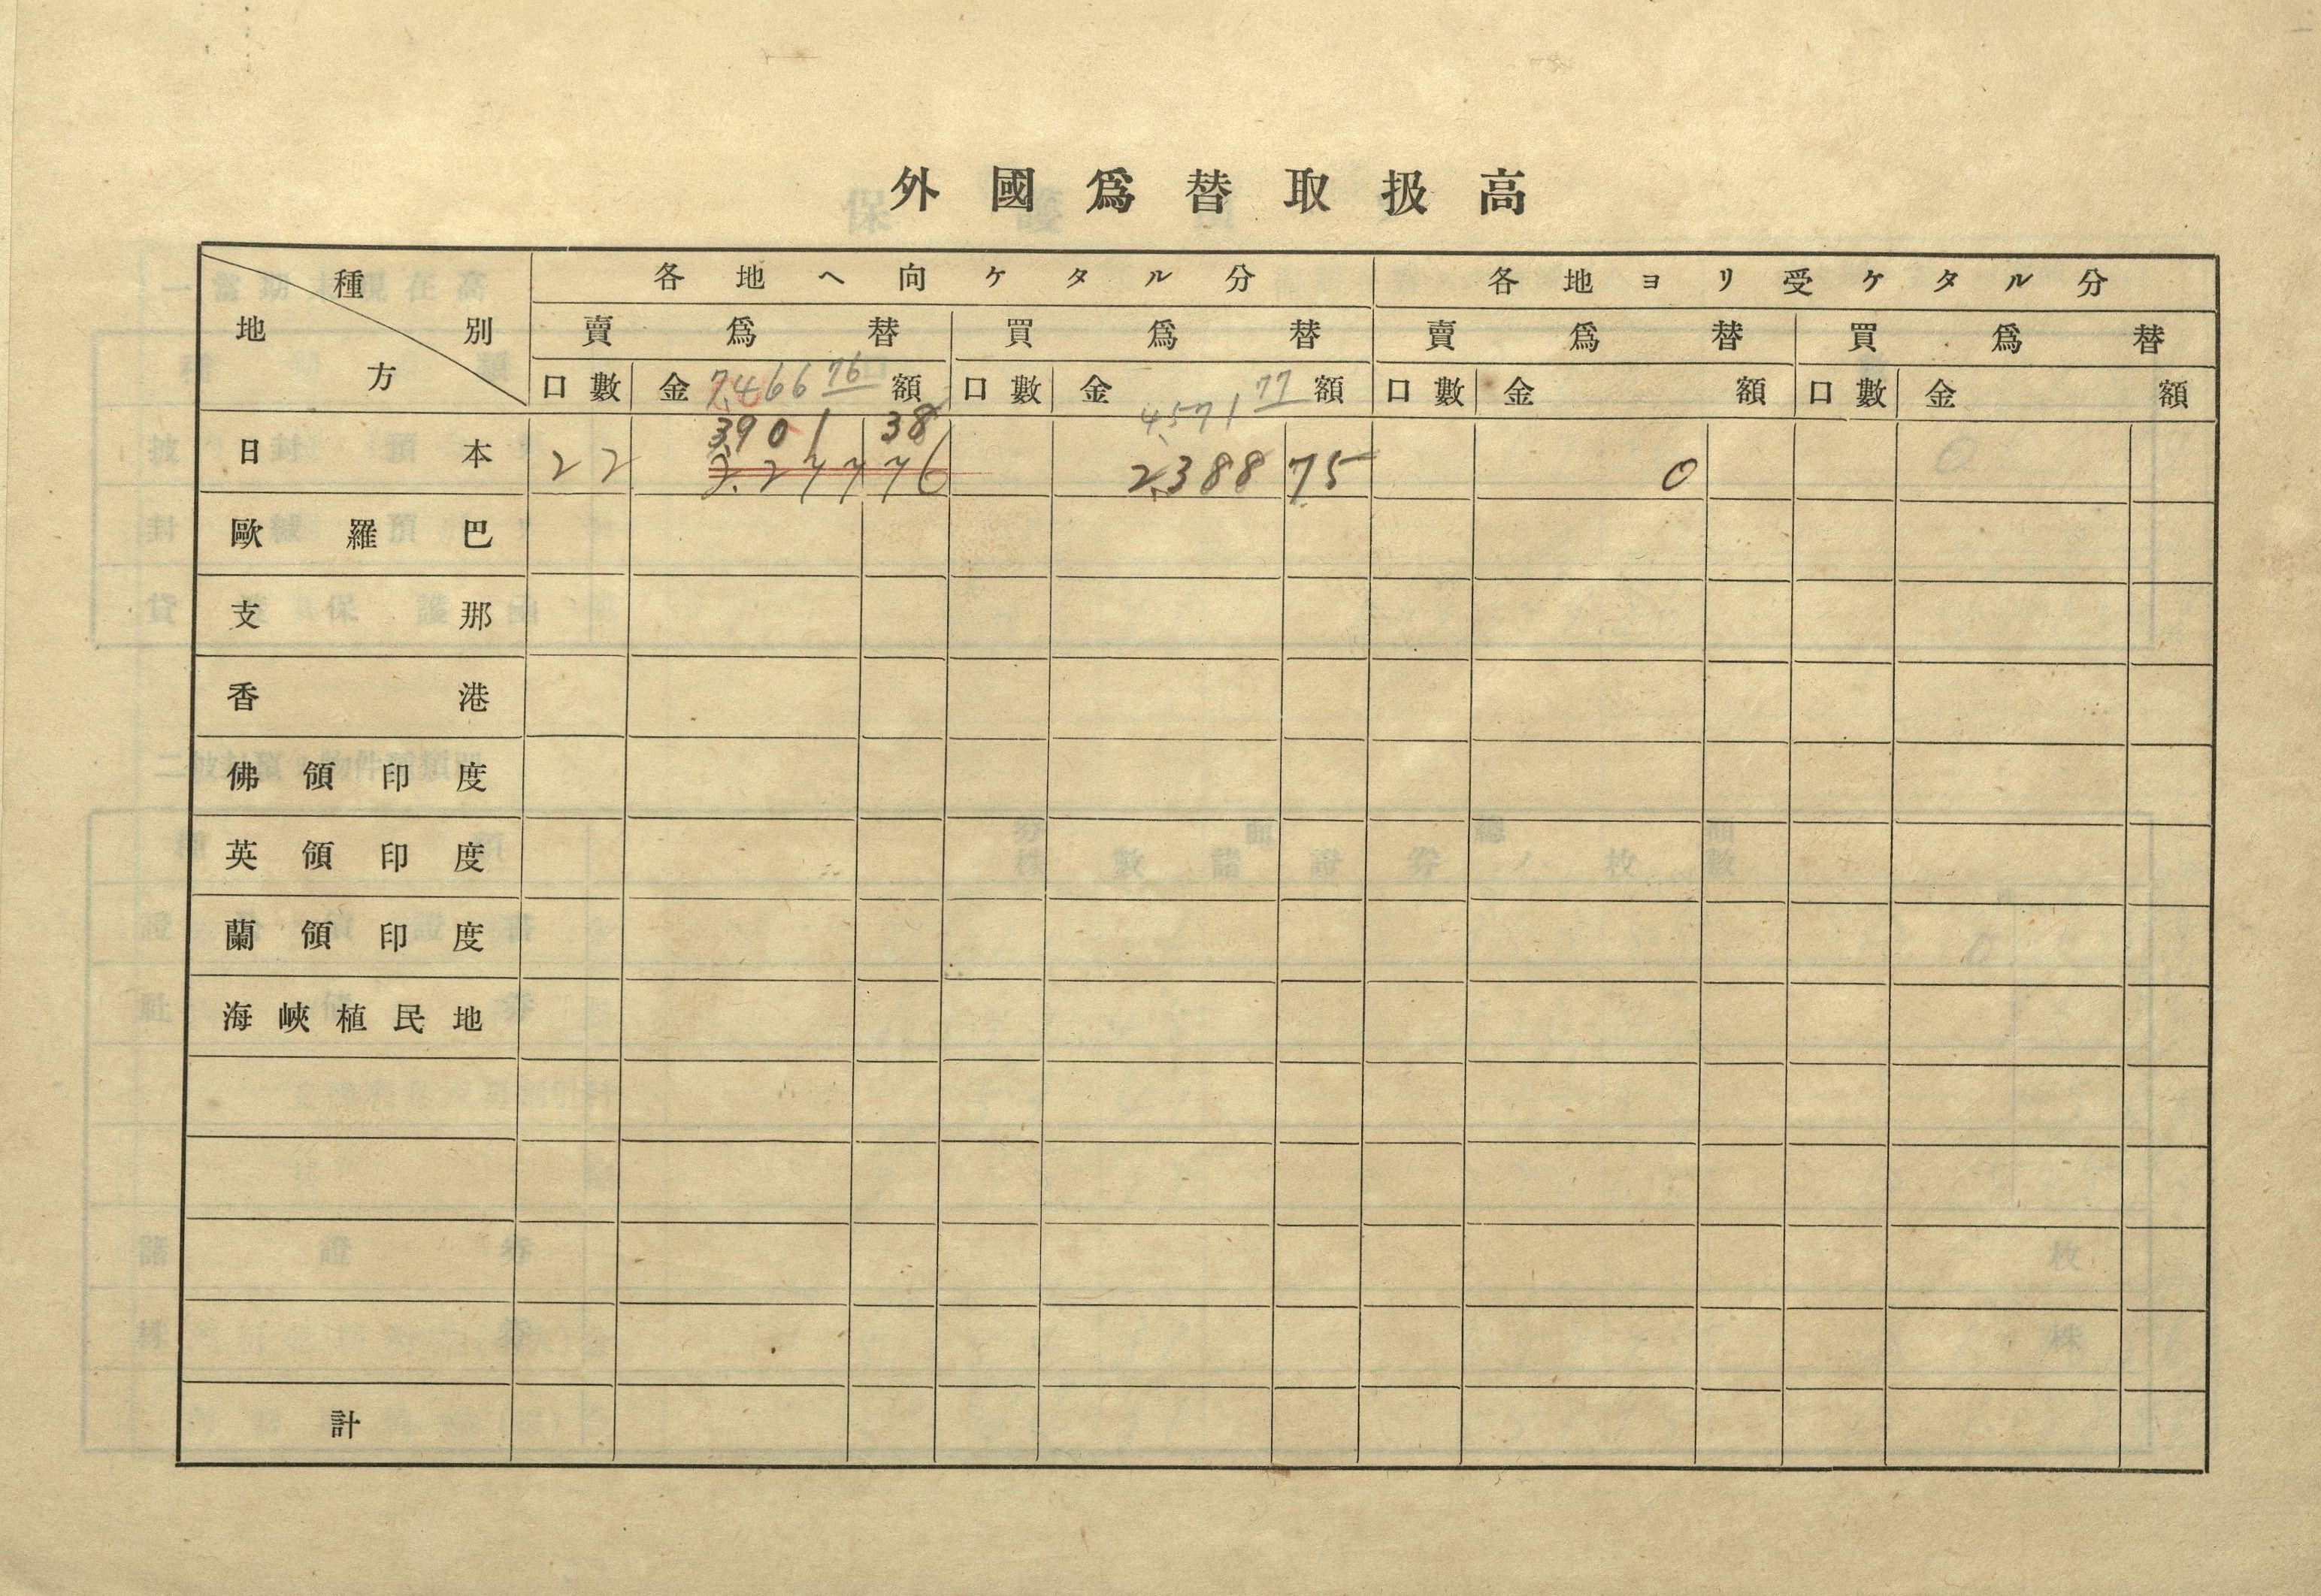 外國爲替取扱高
種別 地方 各地ヘ向ケタル分 各地ヨリ受ケタル分
賣爲替 買爲替 賣爲替 買爲替
口數 金額 口數 金額 口數 金額 口數 金額
7,466 76 4,571 77
3,901 38
日本 22 2,388 75 0
歐羅巴
支那
香港
佛領印度
英領印度
蘭領印度
海峽植民地
計